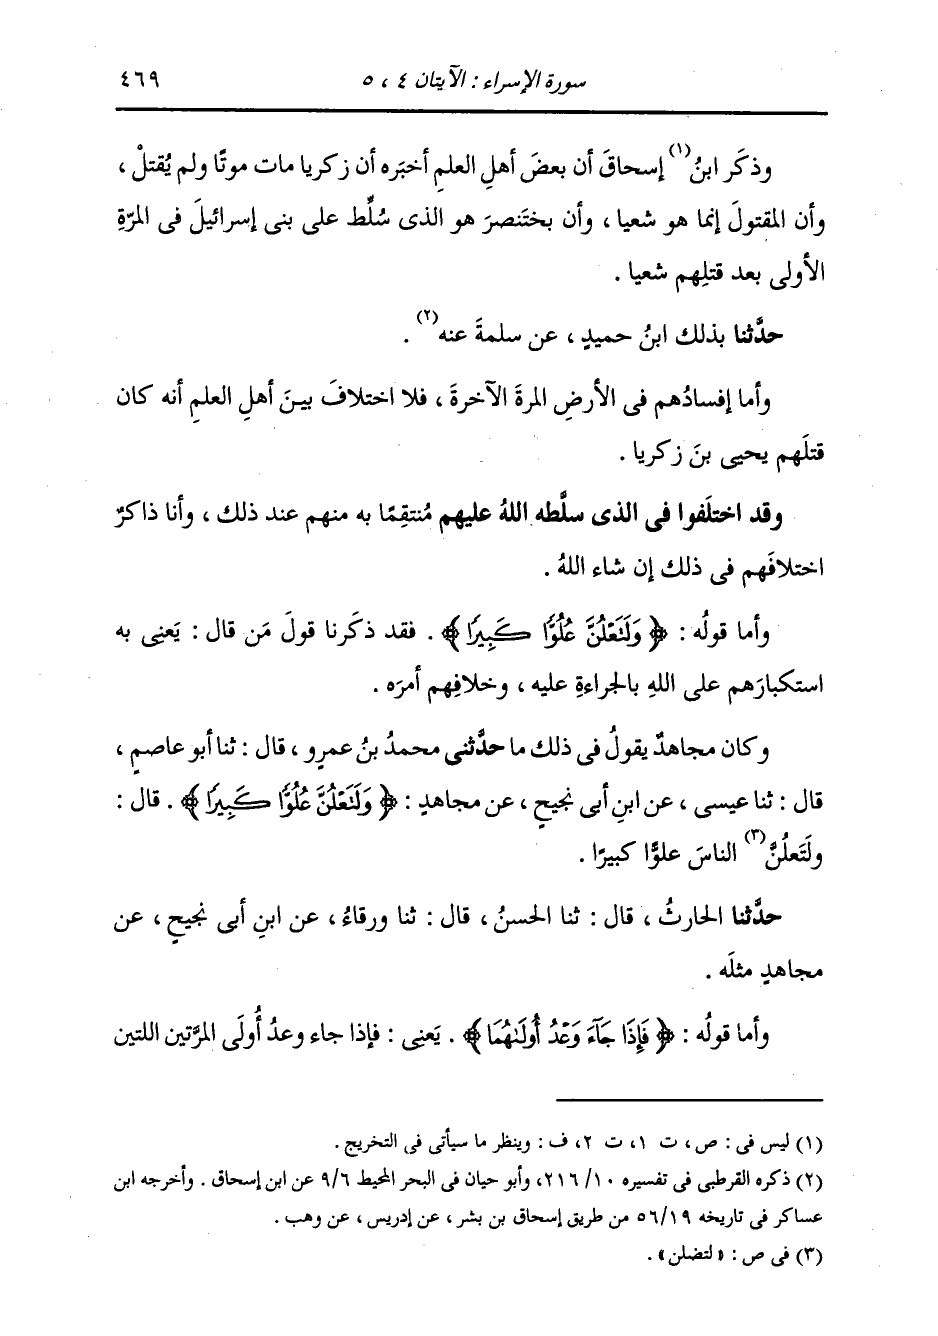 سورة الإسراء : الآيتان ٤ ، ٥ ٤٦٩
وذكَر ابنُ(١) إسحاقَ أن بعضَ أهلِ العلمِ أخبَره أن زكريا مات موتًا ولم يُقتلْ ،
وأن المقتولَ إنما هو شعيا ، وأن بختَنصرَ هو الذى سُلِّط على بنى إسرائيلَ فى المرّةِ
الأولى بعد قتلِهم شعيا .
حدَّثنا بذلك ابنُ حميدٍ ، عن سلمةَ عنه(٢) .
وأما إفسادُهم فى الأرضِ المرةَ الآخرةَ ، فلا اختلافَ بينَ أهلِ العلمِ أنه كان
قتلَهم يحيى بنَ زكريا .
وقد اختلَفوا فى الذى سلَّطه اللهُ عليهم مُنتقِمًا به منهم عند ذلك ، وأنا ذاكرٌ
اختلافَهم فى ذلك إن شاء اللهُ .
وأما قولُه : ﴿ وَلَنَعْلُنَّ عُلُوًّا كَبِيرًا ﴾ . فقد ذكَرنا قولَ مَن قال : يَعنى به
استكبارَهم على اللهِ بالجراءةِ عليه ، وخلافِهم أمرَه .
وكان مجاهدٌ يقولُ فى ذلك ما حدَّثنى محمدُ بنُ عمرٍو ، قال : ثنا أبو عاصمٍ ،
قال : ثنا عيسى ، عن ابنِ أبى نجيحٍ ، عن مجاهدٍ : ﴿ وَلَنَعْلُنَّ عُلُوًّا كَبِيرًا ﴾ . قال :
ولتَعلُنَّ(٣) الناسَ علوًّا كبيرًا .
حدَّثنا الحارثُ ، قال : ثنا الحسنُ ، قال : ثنا ورقاءُ ، عن ابنِ أبى نجيحٍ ، عن
مجاهدٍ مثلَه .
وأما قولُه : ﴿ فَإِذَا جَآءَ وَعْدُ أُولَىٰهُمَا ﴾ . يَعنى : فإذا جاء وعدُ أُولَى المرَّتين اللتين
(١) ليس فى : ص ، ت ١، ت ٢، ف : وينظر ما سيأتى فى التخريج .
(٢) ذكره القرطبى فى تفسيره ١٠/ ٢١٦، وأبو حيان فى البحر المحيط ٩/٦ عن ابن إسحاق . وأخرجه ابن
عساكر فى تاريخه ٥٦/١٩ من طريق إسحاق بن بشر ، عن إدريس ، عن وهب .
(٣) فى ص : « لتضلن » .